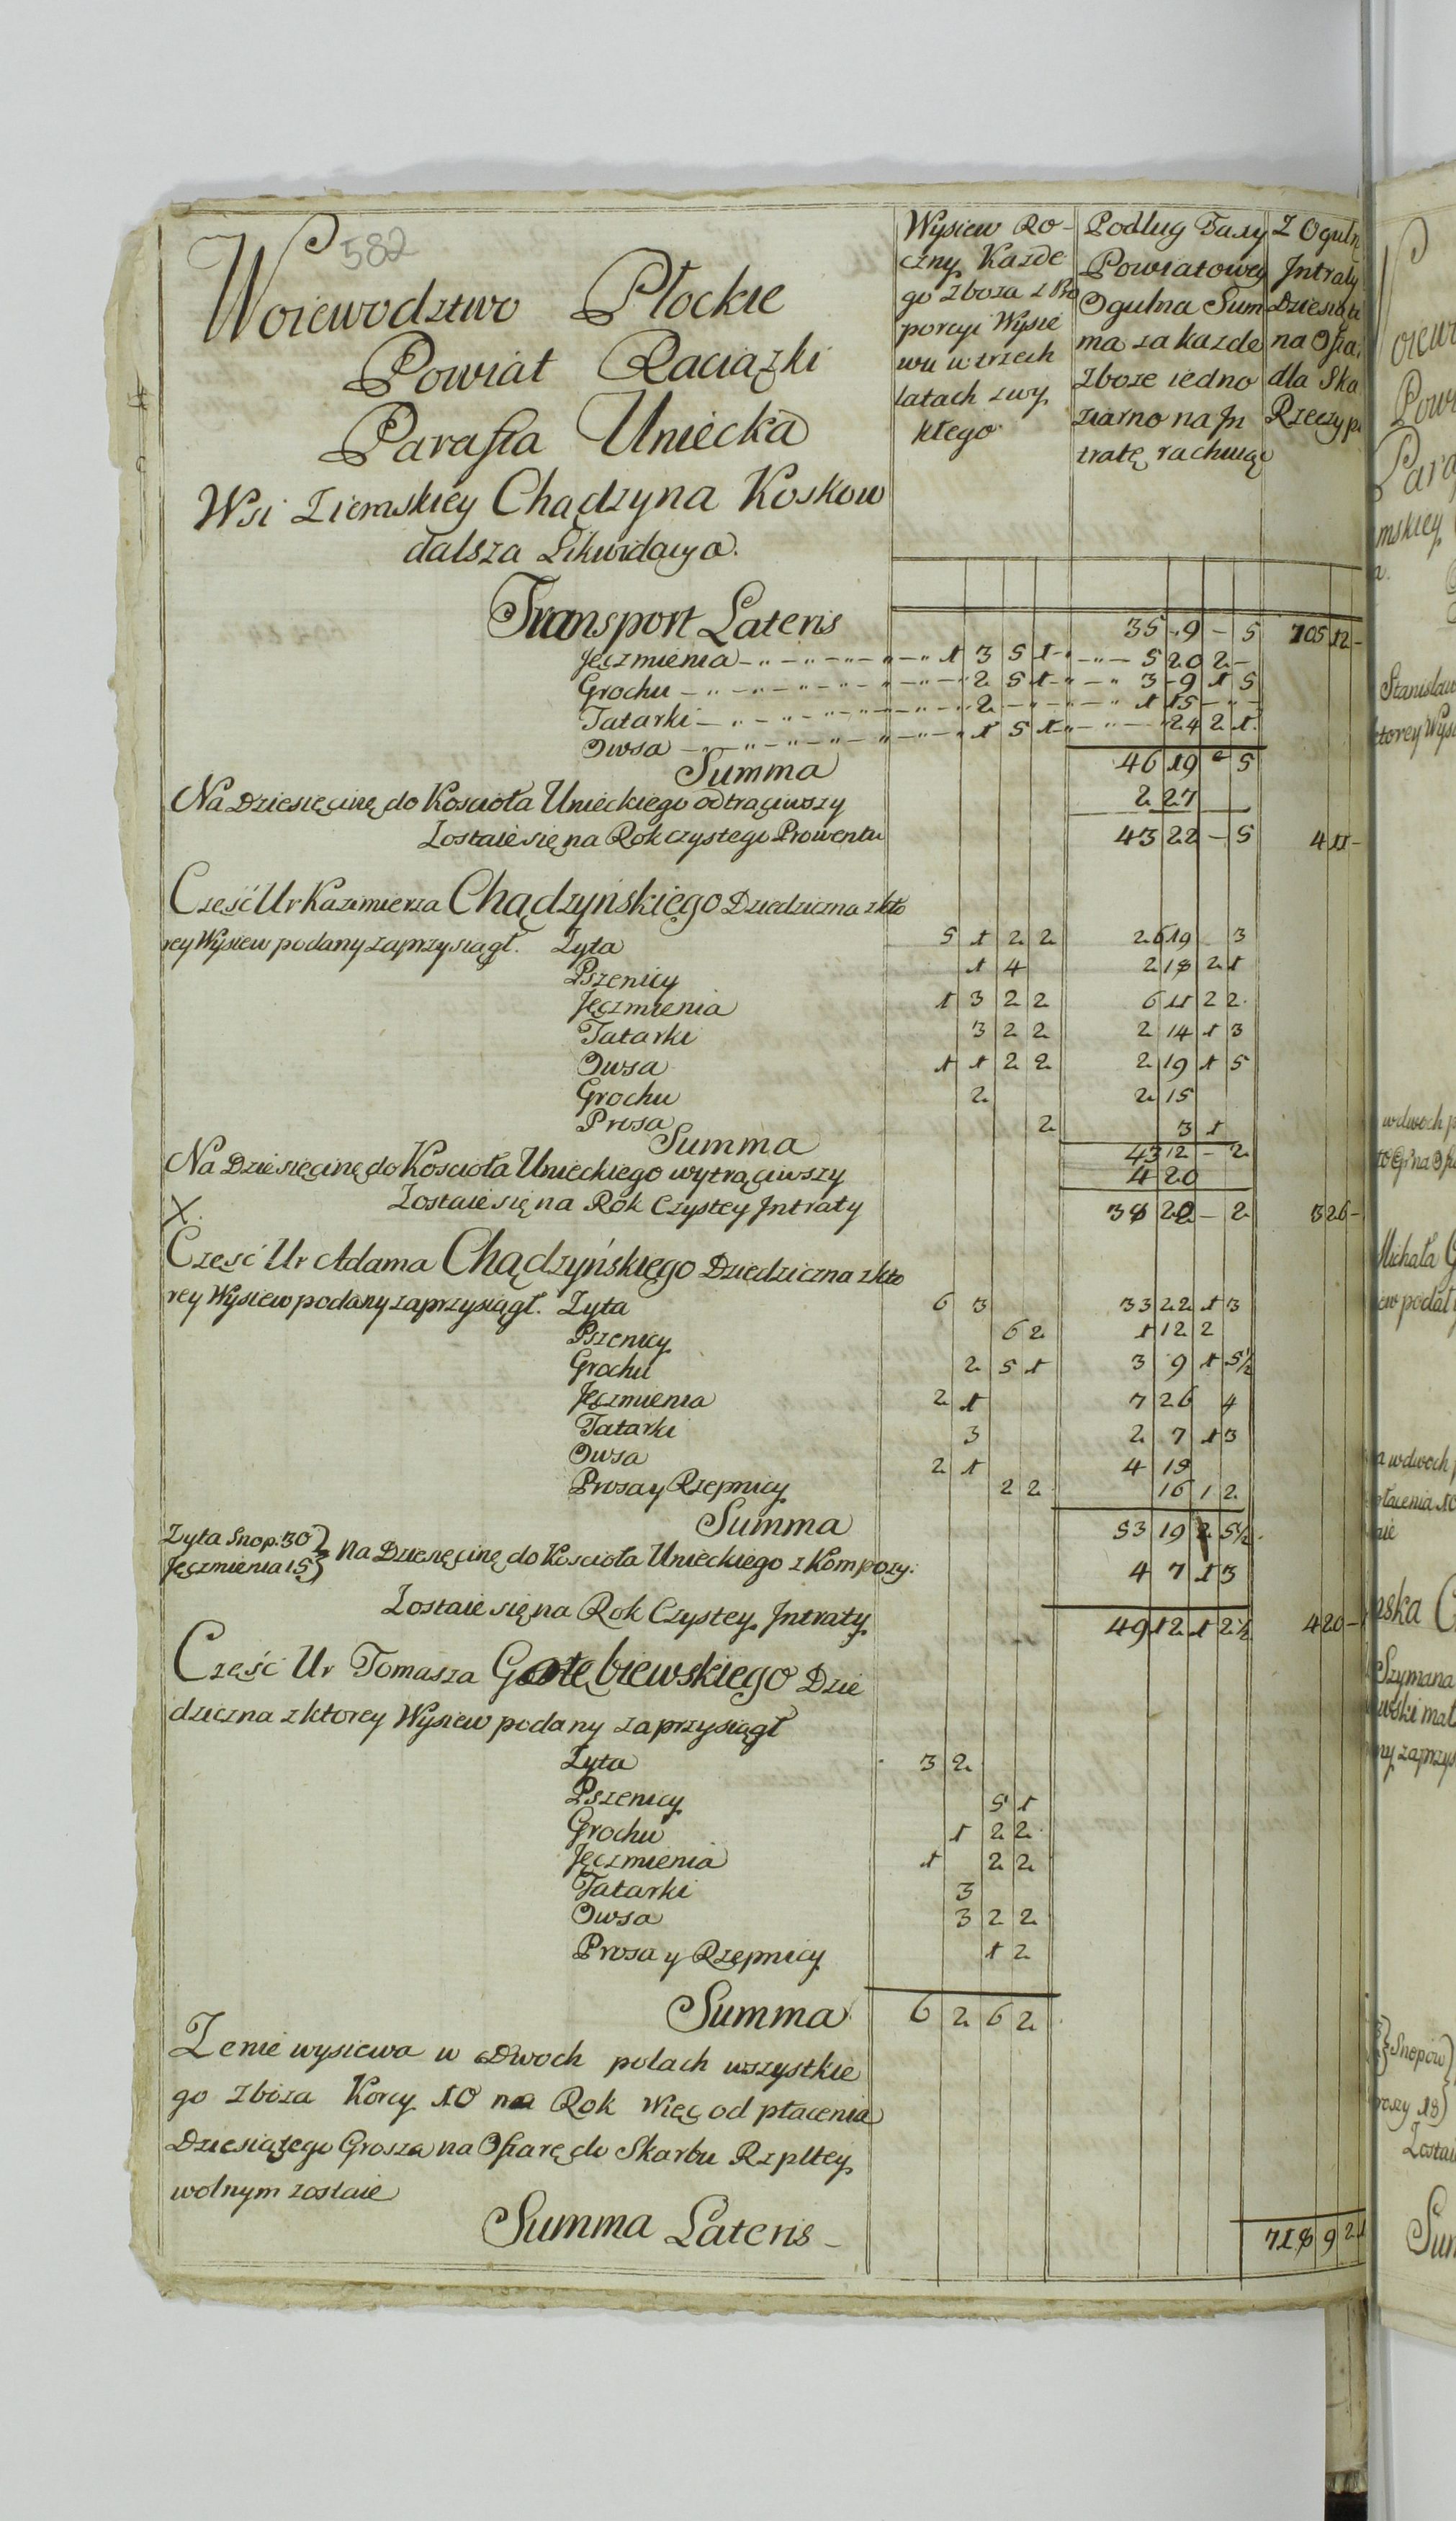 582
Woiewodztwo Płockie
Powiat Raciązki
Parafia Uniecka
Wsi Ziemskiey Chądzyna Koskow
dalsza Likwidacya.
Wysiew Ro-
czny Kazde
go Zboza z Pro
porcyi Wysie
wu w trzech
latach zwy
kłego
Podług Taxy
Powiatowey
Ogulna Sum
ma za kazde
zboze iedno
ziarno na In
tratę rachuiąc
Z Oguln
Intraty
Dziesiąte
na Ofia
dla Ska
Rzeczyp
Transport Lateris 35 9 - 5 705 12 -
Jęczmienia 1 3 5 1 5 20 2 -
Grochu 2 5 1 3 9 1 5
Tatarki 2 1 15 -
Owsa 1 5 1 24 2 1
Summa 46 19 - 5
Na Dziesięcinę do Koscioła Unieckiego odtrąciwszy 2 27
Zostaie się na Rok czystego Prowentu 43 22 - 5 4 11 -
Część Ur Kazimierza Chądzyńskiego Dziedziczna z kto
rey Wysiew podany zaprzysiągł. Zyta 5 1 2 2 26 19 3
Pszenicy 1 4 2 18 2 1
Jęczmienia 1 3 2 2 6 11 2 2
Tatarki 3 2 2 2 14 1 3
Owsa 1 1 2 2 2 19 1 5
Grochu 2 2 15
Prosa 2 3 1
Summa 43 12 - 2
Na Dziesięcinę do Koscioła Unieckiego wytrąciwszy 4 20
X. Zostaie się na Rok Czystey Intraty 38 22 - 2 3 26 -
Część Ur Adama Chądzyńskiego Dziedziczna z kto
rey Wysiew podany zaprzysiągł. Zyta 6 3 33 22 1 3
Pszenicy 6 2 1 12 2
Grochu 2 5 1 3 9 1 5½
Jęczmienia 2 1 7 26 4
Tatarki 3 2 7 1 3
Owsa 2 1 4 15
Prosa y Rzepnicy 2 2 16 1 2
Summa 53 19 2 5½
Zyta Snop. 30 } Na Dziesięcinę do Koscioła Unieckiego z Kompozy: 4 7 1 3
Jęczmienia 15 }
Zostaie się na Rok Czystey Intraty 49 12 1 2½ 4 20 -
Część Ur Tomasza Gołębiewskiego Dzie
dziczna z ktorey Wysiew podany zaprzysiągł
Zyta 3 2
Pszenicy 5 1
Grochu 1 2 2
Jęczmienia 1 2 2
Tatarki 3
Owsa 3 2 2
Prosa y Rzepnicy 1 2
Summa 6 2 6 2
Ze nie wysiewa w Dwoch polach wszystkie
go Zboza Korcy 10 na Rok Więc od płacenia
Dziesiątego Grosza na Ofiarę do Skarbu Rzpltey
wolnym zostaie
Summa Lateris - 718 9 2